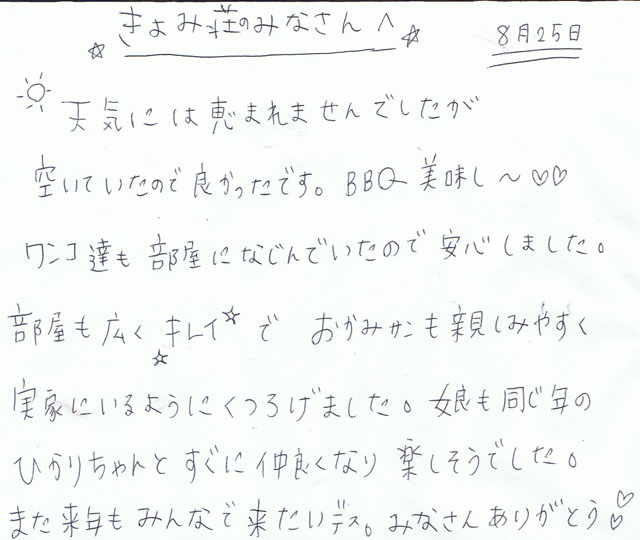 きよみ荘のみなさんへ
8月25日
天気には恵まれませんでしたが
空いていたので良かったです。BBQ美味し〜♡♡
ワンコ達も部屋になじんでいたので安心しました。
部屋も広くキレイ☆で おかみサンも親しみやすく
実家にいるようにくつろげました。娘も同じ年の
ひかりちゃんとすぐに仲良くなり楽しそうでした。
また来年もみんなで来たいデス。みなさんありがとう♡